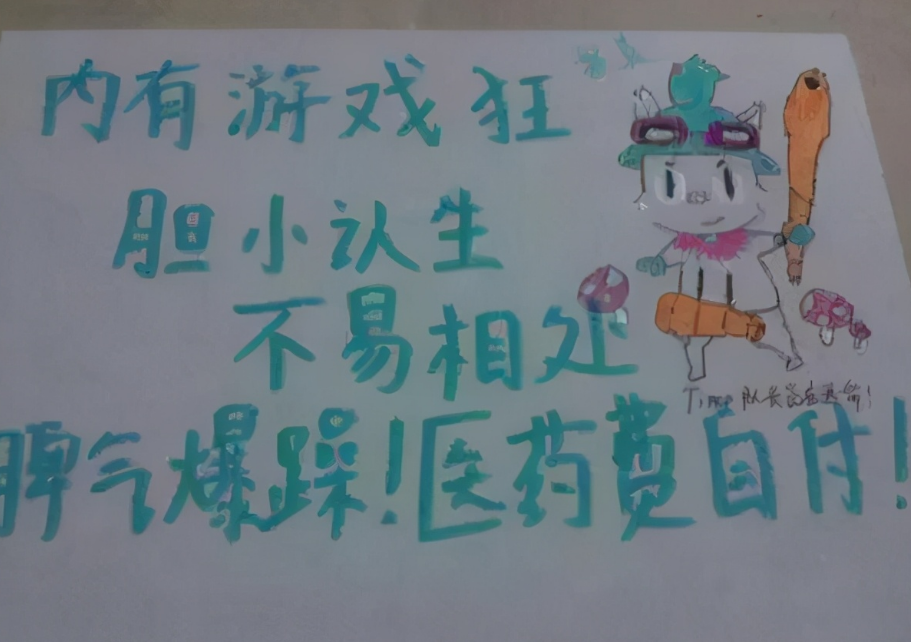 内有游戏狂
胆小认生
不易相处
Timo 队长
脾气爆躁!医药费自付!